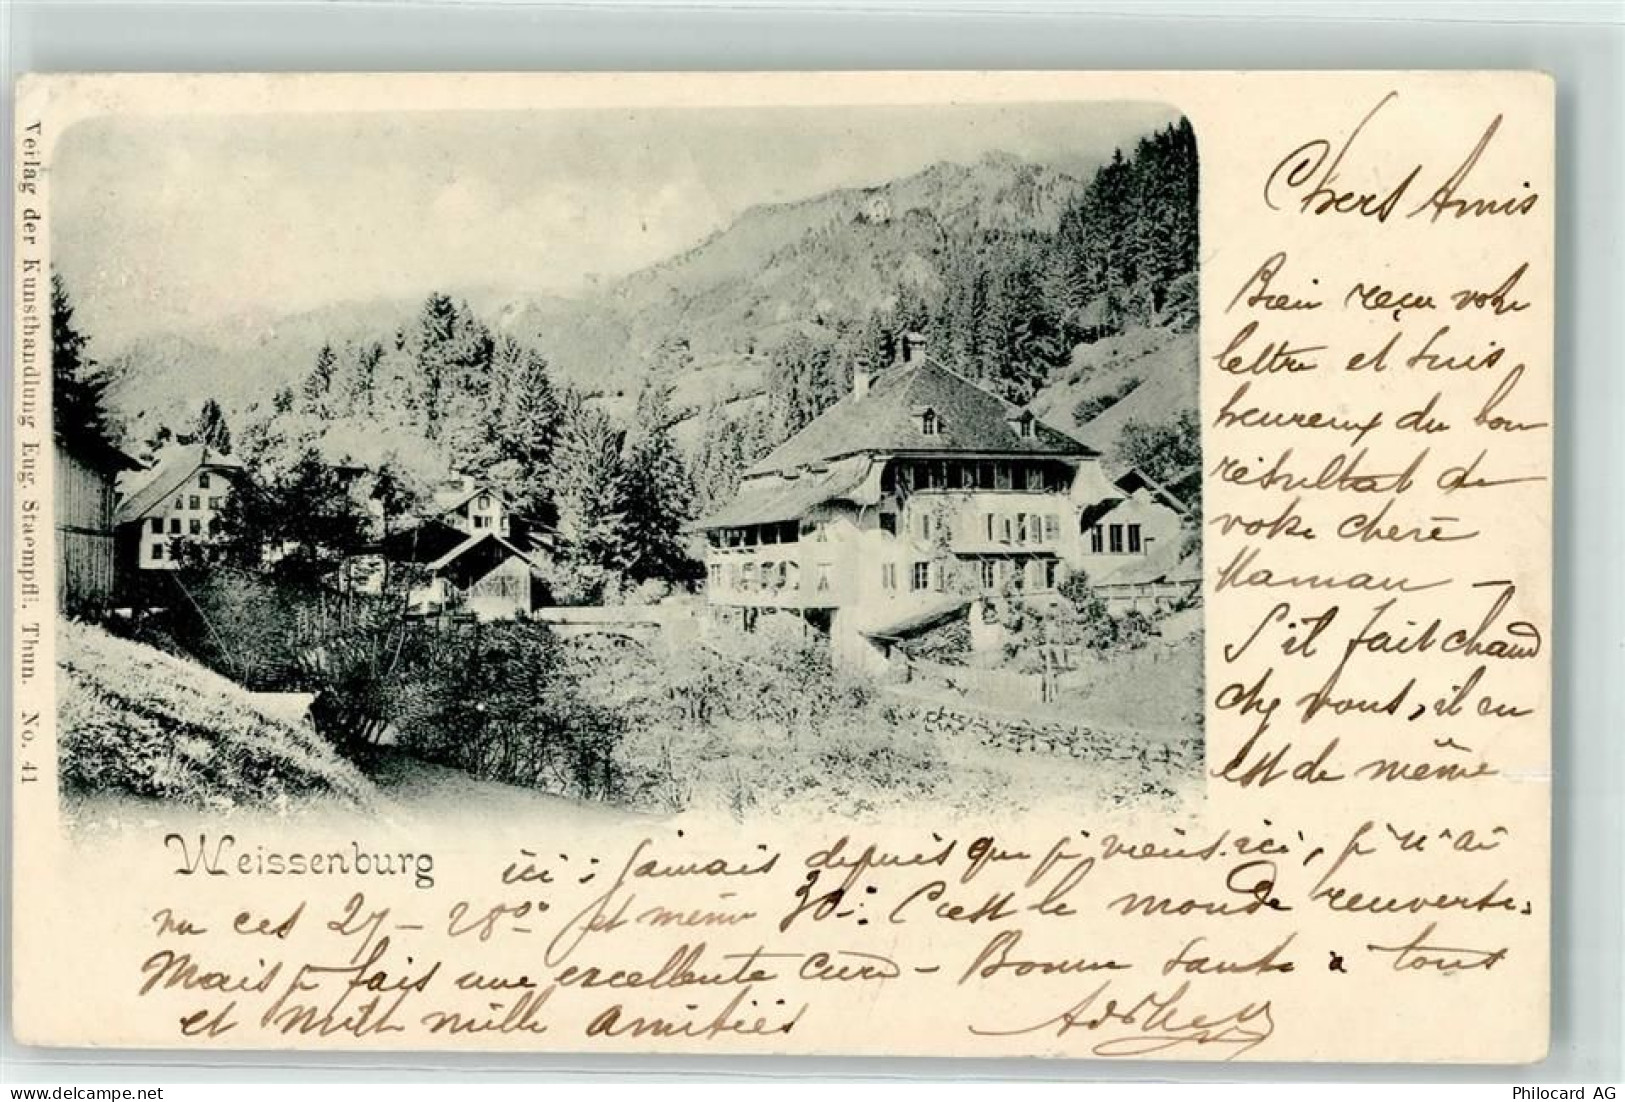 Verlag der Kunsthandlung Eug. Staempfli. Thun. No. 41
Weissenburg
Chers Amis
Bien reçu votre
lettre et suis
heureux du bon
résultat de
votre chère
Maman –
S'il fait chaud
chez vous, il en
est de même
ici: jamais depuis que je viens ici, je n'ai
vu ces 27 – 28° et même 30. C'est le monde renversé.
Mais je fais une excellente cure – Bonne santé à tous
et mille mille amitiés
Philocard AG